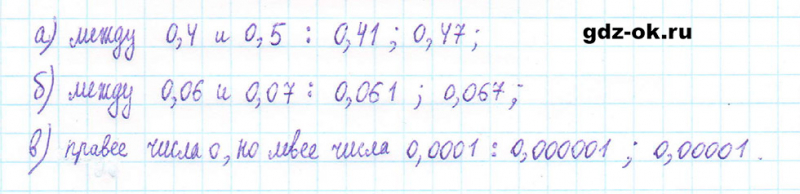 gdz-ok.ru
а) между 0,4 и 0,5 : 0,41 ; 0,47 ;
б) между 0,06 и 0,07 : 0,061 ; 0,067 ;
в) правее числа 0, но левее числа 0,0001 : 0,000001 ; 0,00001 .